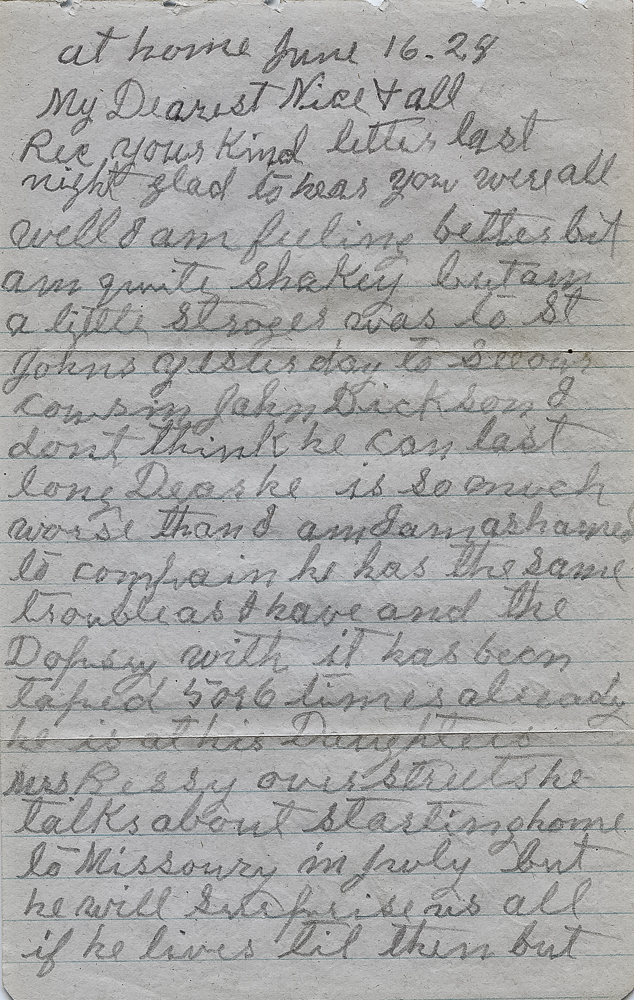 at home June 16-28
My Dearest Nice & all
Rec your Kind letter last
night glad to hear you were all
well I am feeling better but
am quite shakey but am
a little stroger was to St
Johns yesterday to see our
cousin John Dickson I
dont think he can last
long Dear he is so much
worse than I am I am ashamed
to complain he has the same
trouble as I have and the
Dopsy with it has been
taped 5 or 6 times already
he is at his Daughters
Mrs over streets he
talks about starting home
to Missoury in july but
he will surprise us all
if he lives til then but